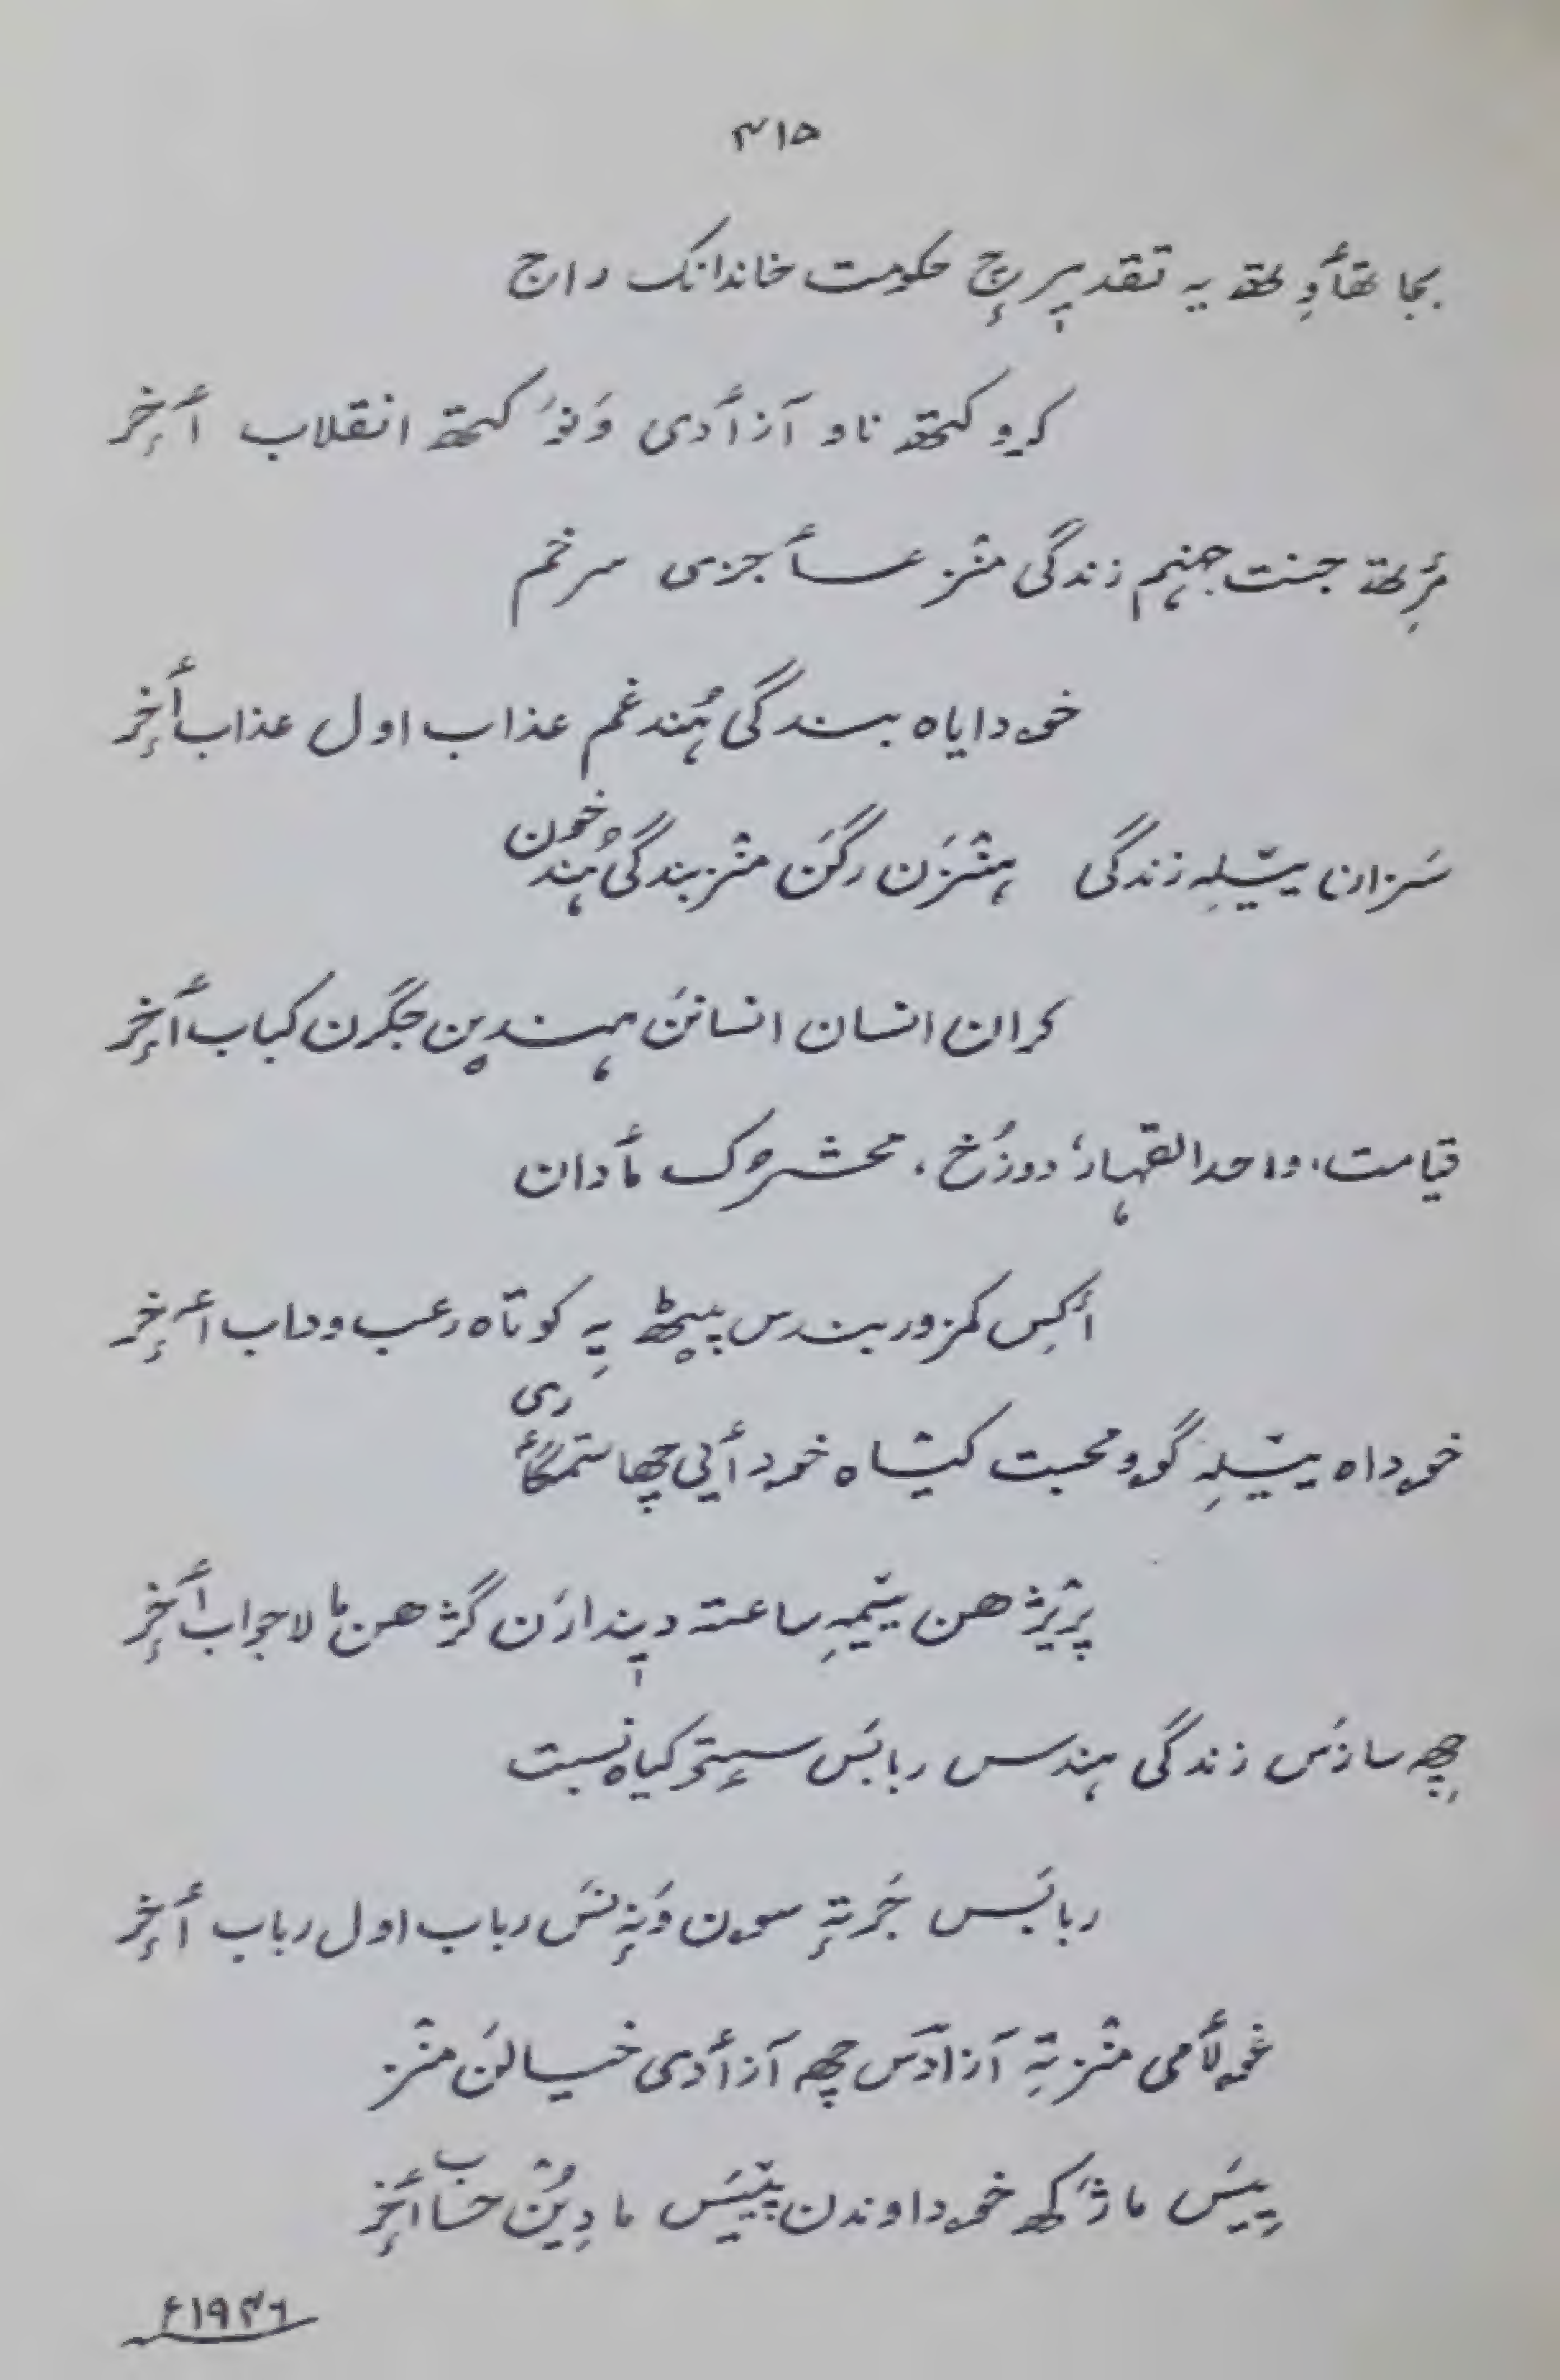 ۴۱۵
بجا تھٲوِتھ یہ تقدیرٕچ حکومت خاندانک راج
کریو کتھ ناو آزٲدی وَنوٚ کتھ انقلاب ٲخِر
مٔرِتھ جنت جہنم زندگی منٛز عٲجزی سرخم
خۄدایاہ بندگی ہُند غم عذاب اول عذاب ٲخِر
سَزانا یٔتیلہِ زندگی ہنٛزن رگَن منٛز بندگی ہُند خون
کران انسان انسانَن ہندین جگرن کباب ٲخِر
قیامت، واحد القہار، دوزُخ، محشرُک مٲدان
أکِس کمزور بندس پیٹھ یہِ کوتاہ رعب وداب ٲخِر
خۄداہ یٔتیلہِ گوو محبت کیتاہ خۄدٲیی چھا ستمگٲری
پرٛژھن ییٚمہِ ساعتہ دیندارَن گژھن ما لاجواب ٲخِر
چھِہ سازَس زندگی ہندس ربابَس سٟتۍ کیاہ نسبت
ربابَس جَرتہٕ سۄن وَنہٕ نَس رباب اول رباب ٲخِر
غۄلٲمی منٛز تہِ آزادَس چھہ آزٲدی خیالَن منٛز
پییَس ماژکھ خۄداوندن پتییَس ما دِیُن حساب ٲخِر
۱۹۴۶ء